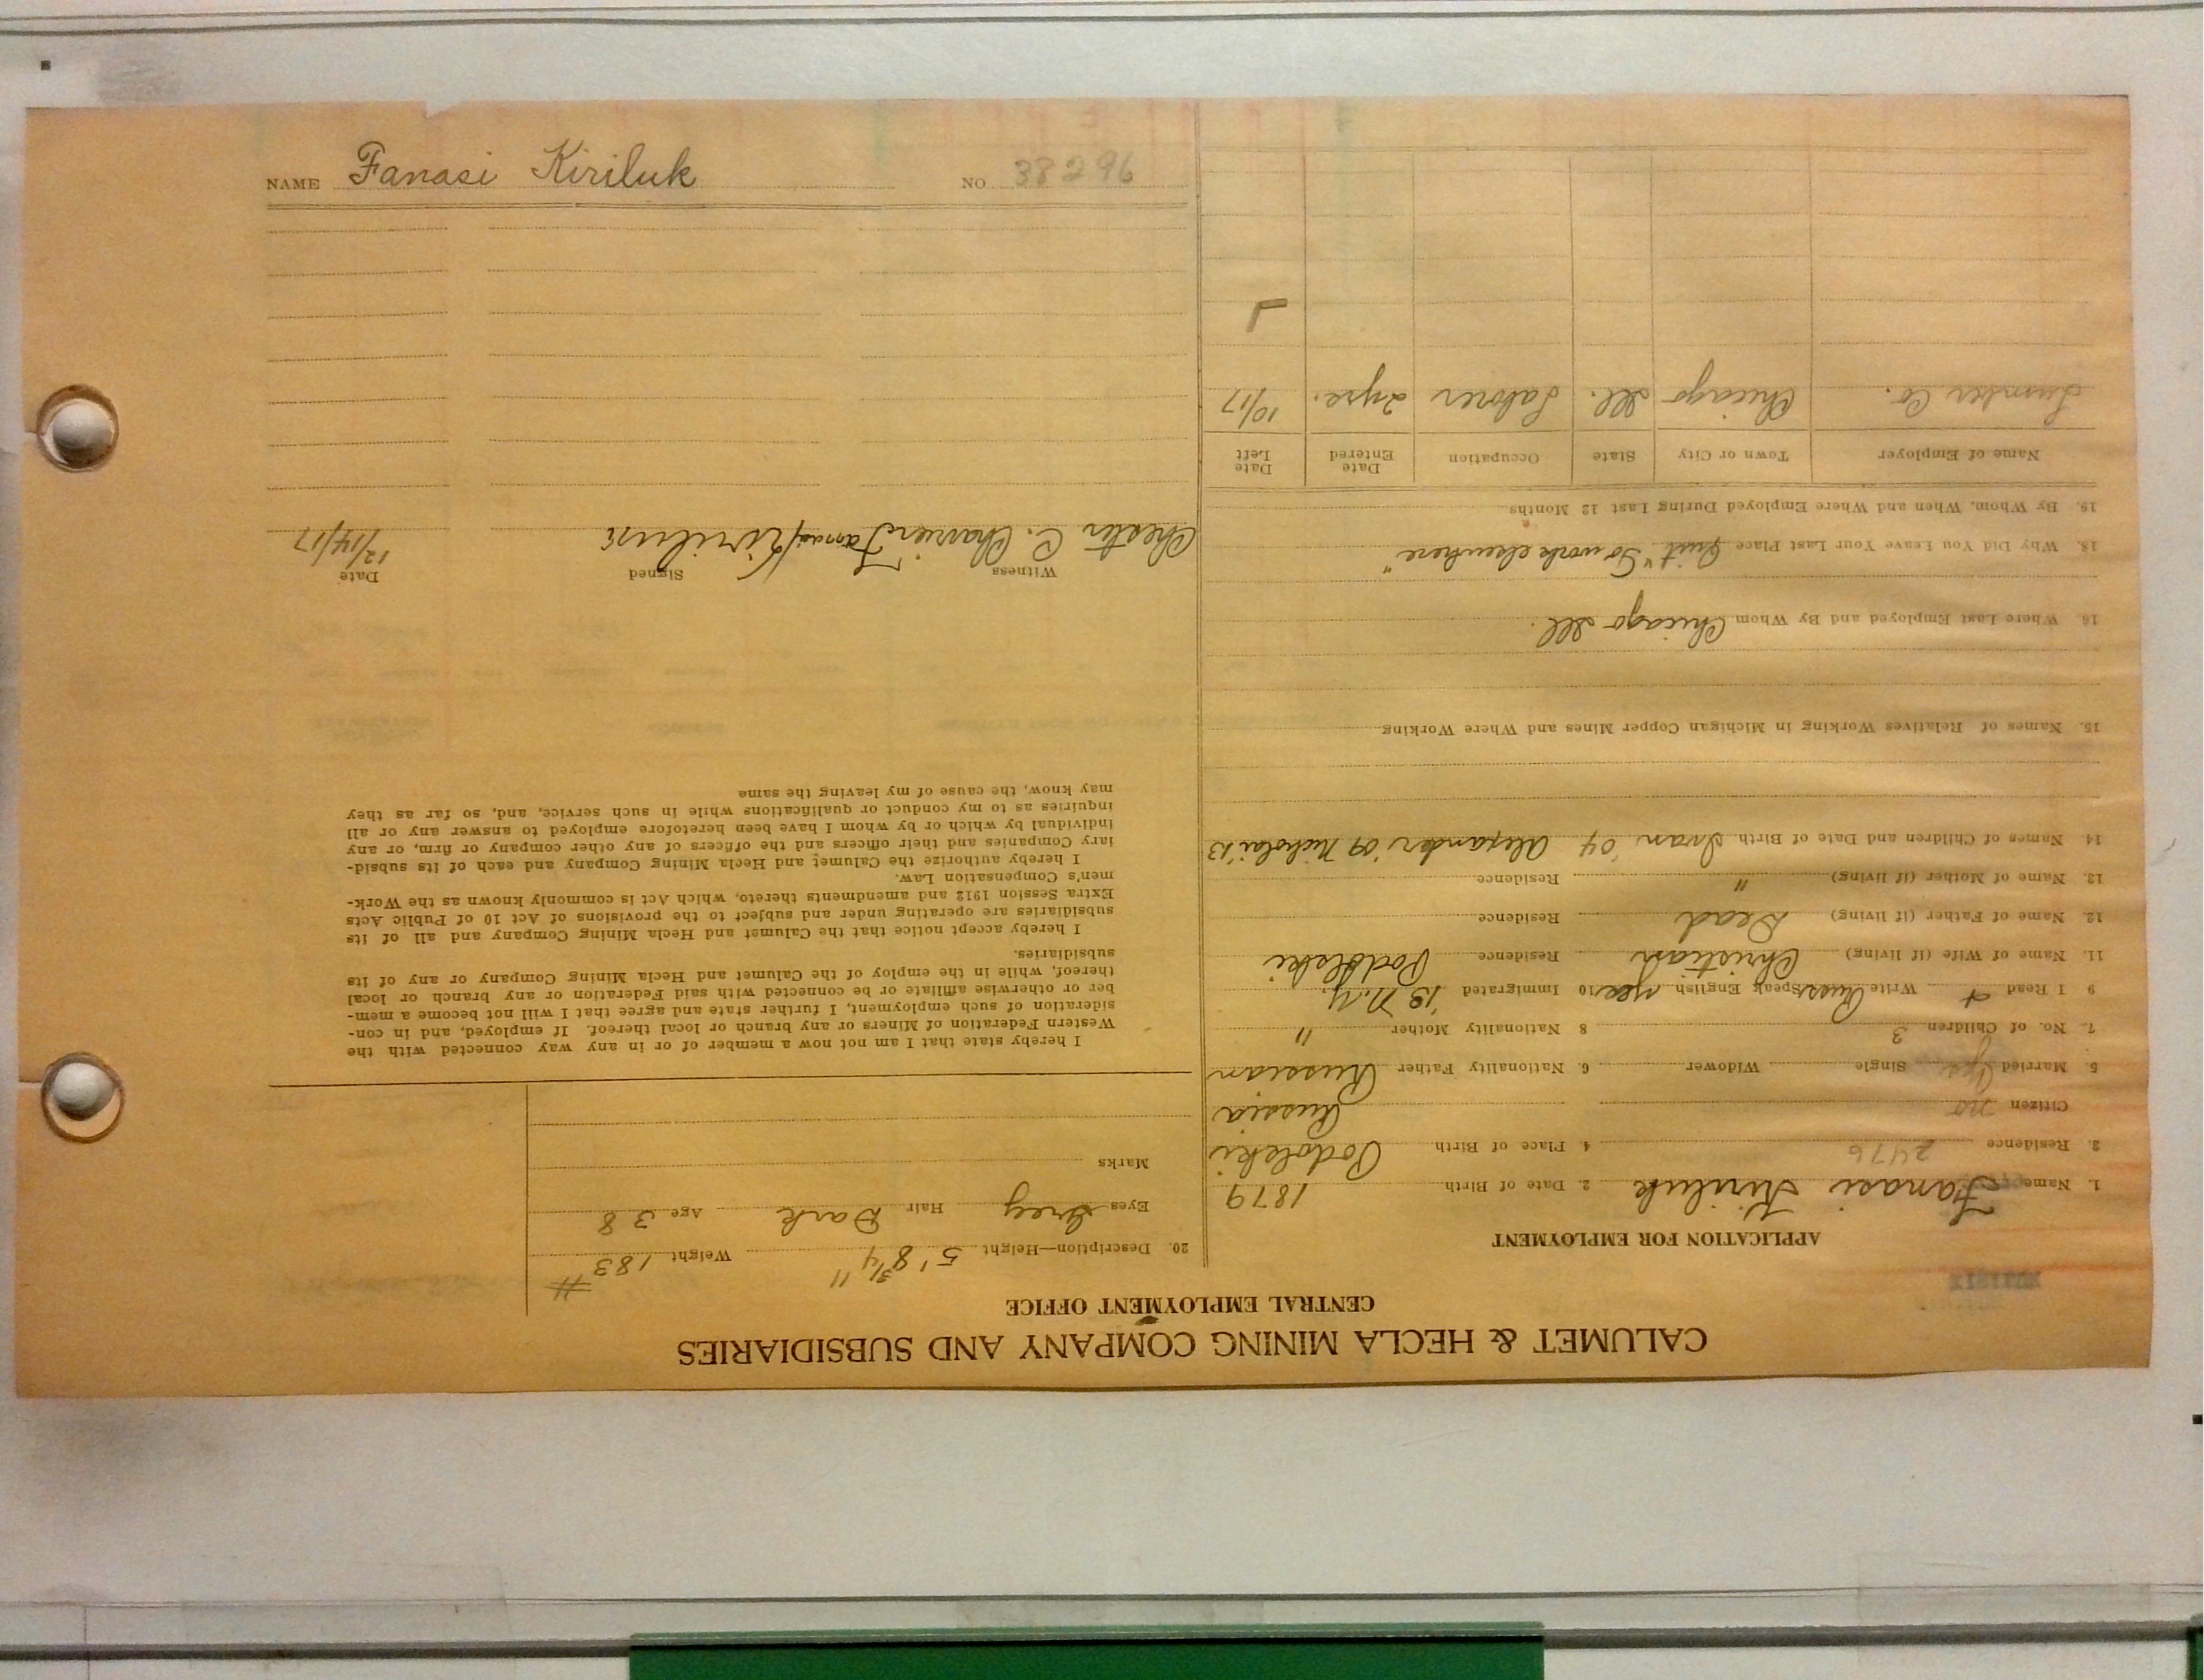 NAME Fanasi Kiriluk NO 38296
CALUMET & HECLA MINING COMPANY AND SUBSIDIARIES
CENTRAL EMPLOYMENT OFFICE
APPLICATION FOR EMPLOYMENT
1. Name Fanasi Kiriluk 2. Date of Birth 1879
3. Residence 2476 4. Place of Birth Podolski
Citizen no Russia
5. Married Yes Single Widower 6. Nationality Father Russian
7. No. of Children 3 8 Nationality Mother "
9 I Read + Write Russ Speak English yes 10 Immigrated '13 N.Y.
11. Name of Wife (if living) Christian Residence Podolski
12. Name of Father (if living) Dead Residence
13. Name of Mother (if living) " Residence
14. Names of Children and Date of Birth Ivan '04 Alexander '09 Nicholai '13
15. Names of Relatives Working in Michigan Copper Mines and Where Working
16. Where Last Employed and By Whom Chicago Ill.
18. Why Did You Leave Your Last Place Quit "To work elsewhere"
19. By Whom, When and Where Employed During Last 12 Months
Name of Employer Town or City State Occupation Date Entered Date Left
Lumber Co. Chicago Ill. Laborer 2 yrs. 10/17
20. Description—Height 5' 8 3/4" Weight 183 #
Eyes Grey Hair Dark Age 38
Marks
I hereby state that I am not now a member of or in any way connected with the
Western Federation of Miners or any branch or local thereof. If employed, and in con-
sideration of such employment, I further state and agree that I will not become a mem-
ber or otherwise affiliate or be connected with said Federation or any branch or local
thereof, while in the employ of the Calumet and Hecla Mining Company or any of its
subsidiaries.
I hereby accept notice that the Calumet and Hecla Mining Company and all of its
subsidiaries are operating under and subject to the provisions of Act 10 of Public Acts
Extra Session 1912 and amendments thereto, which Act is commonly known as the Work-
men's Compensation Law.
I hereby authorize the Calumet and Hecla Mining Company and each of its subsid-
iary Companies and their officers and the officers of any other company or firm, or any
individual by which or by whom I have been heretofore employed to answer any or all
inquiries as to my conduct or qualifications while in such service, and, so far as they
may know, the cause of my leaving the same
Witness Signed Date
Chester C. Fanasi 12/14/17